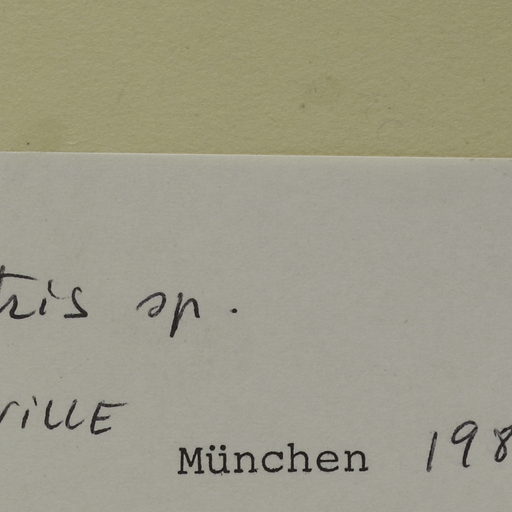 tris sp.
VILLE
München 198